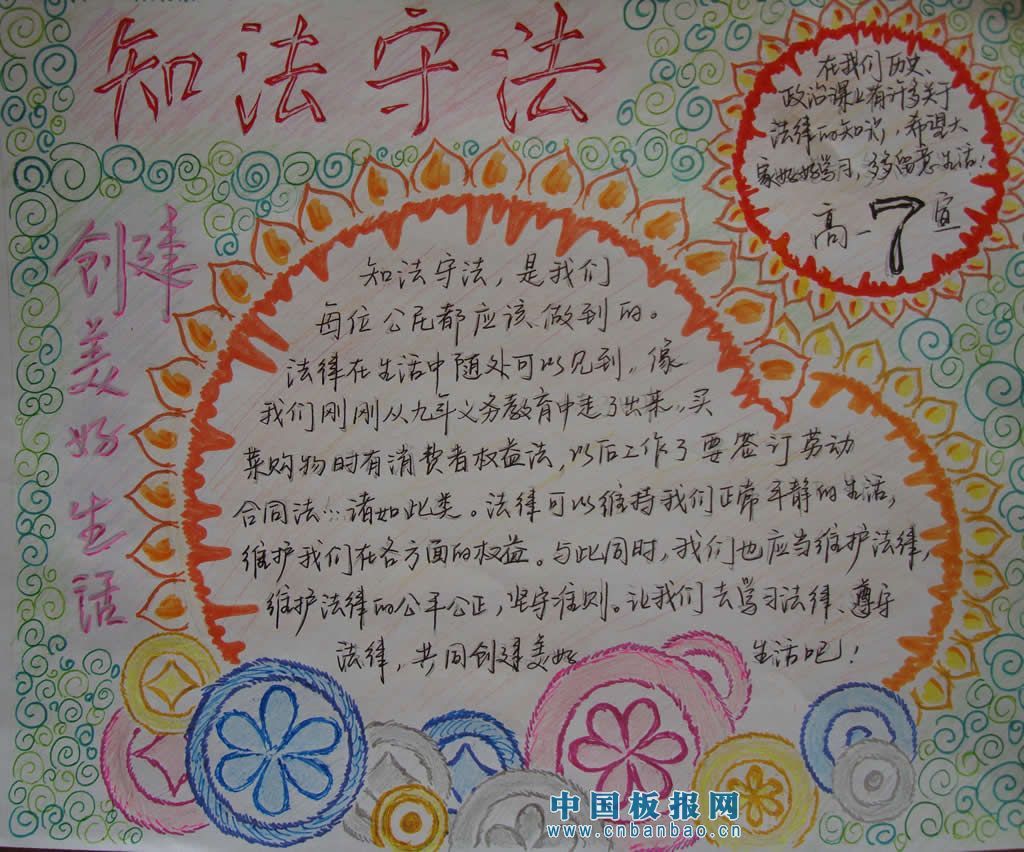 知法守法
创建
美
好
生
活
在我们历史、
政治课上有许多关于
法律的知识，希望大
家好好学习，多留意生活！
高一7宣
知法守法，是我们
每位公民都应该做到的。
法律在生活中随处可以见到，像
我们刚刚从九年义务教育中走了出来，买
菜购物时有消费者权益法，以后工作了要签订劳动
合同法…诸如此类。法律可以维持我们正常平静的生活，
维护我们在各方面的权益。与此同时，我们也应当维护法律，
维护法律的公平公正，坚守准则。让我们去学习法律、遵守
法律，共同创建美好 生活吧！
中国板报网
www.cnbanbao.cn